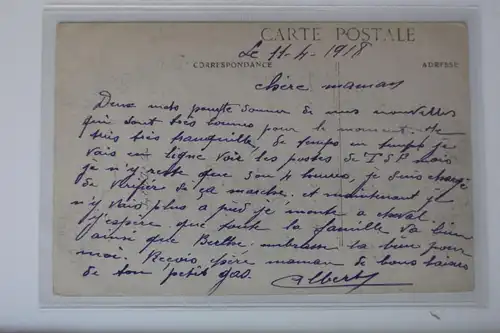 CARTE POSTALE
Le 11-4-1918
CORRESPONDANCE
ADRESSE
chère maman
Deux mots pour te donner de mes nouvelles
qui sont très bonnes pour le moment.
très très tranquille, de temps en temps je
vais en ligne voir les postes de T S F mais
je n'y reste que 3 ou 4 heures, je suis chargé
de vérifier si ça marche. et maintenant je
n'y vais plus a pied je monte a cheval
J'espère que toute la famille va bien
ainsi que Berthe. embrasse la bien pour
moi. Reçois chère maman de bons baisers
de ton petit gas. Albert